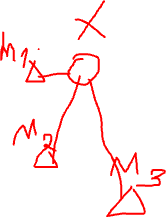 X
M1
M2
M3